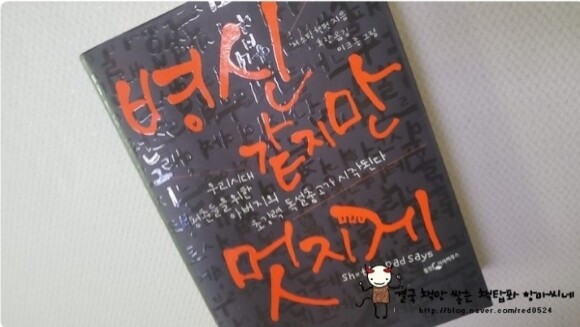 저스틴 핼펀 지음
호란 옮김
이크종 그림
병신
같지만
멋지게
우리시대
청춘들을 위한
아버지의
초강력 독설충고가 시작된다
dad says
결국 책만 쌓는 책탑파 항마씨네
http://blog.naver.com/red0524